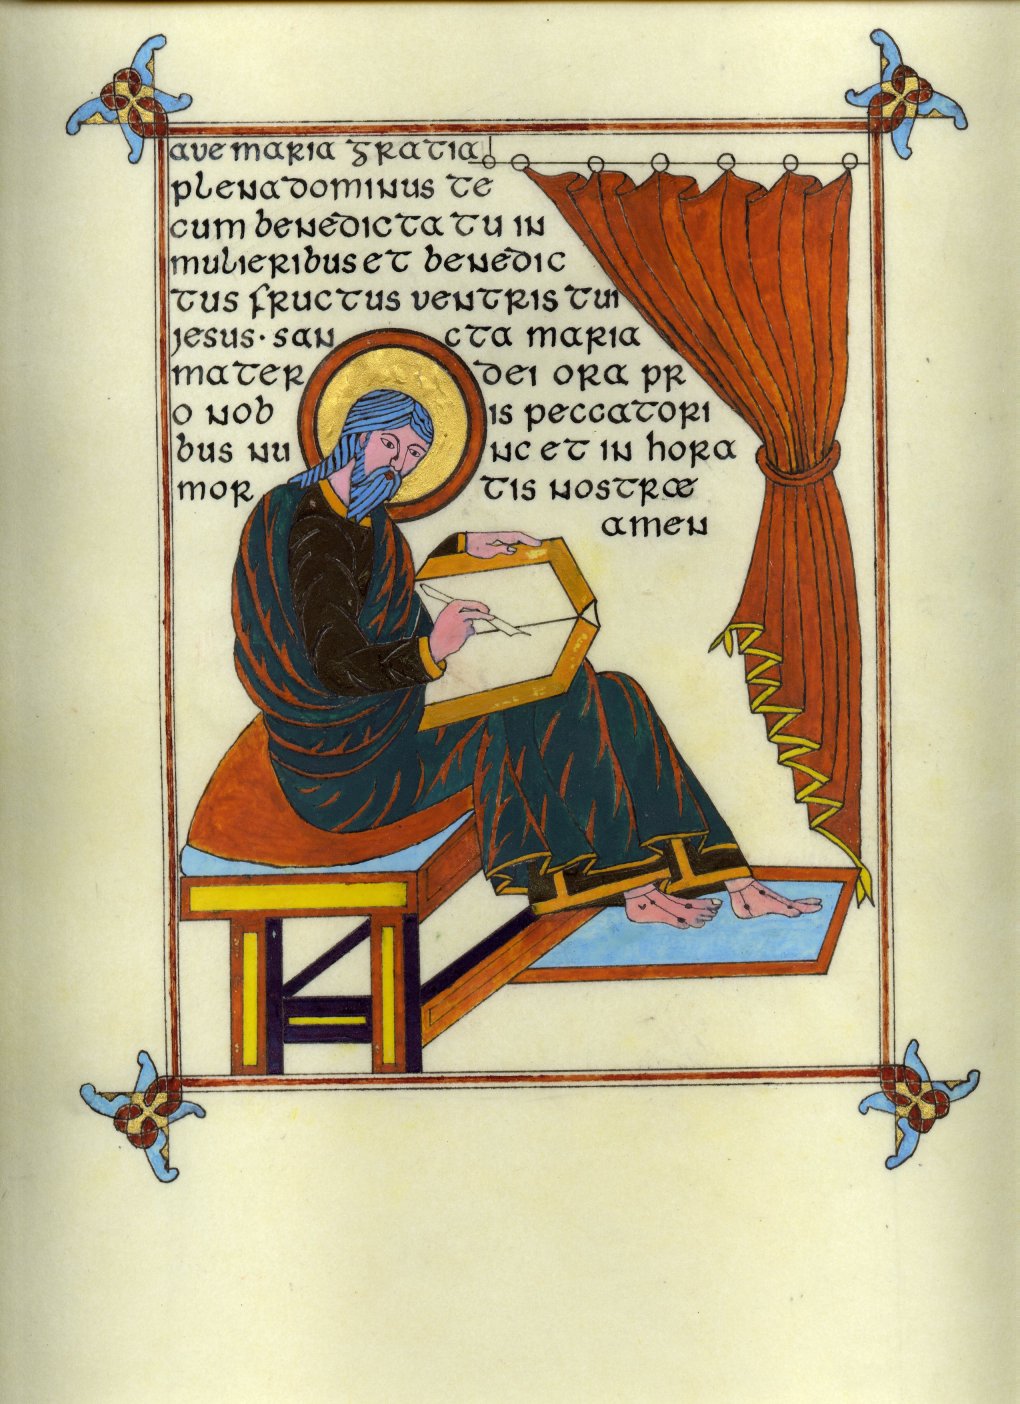 ave maria gratia
plena dominus te
cum benedicta tu in
mulieribus et benedic
tus fructus ventris tui
jesus · sancta maria
mater dei ora pr
o nobis peccatori
bus nunc et in hora
mortis nostræ
amen